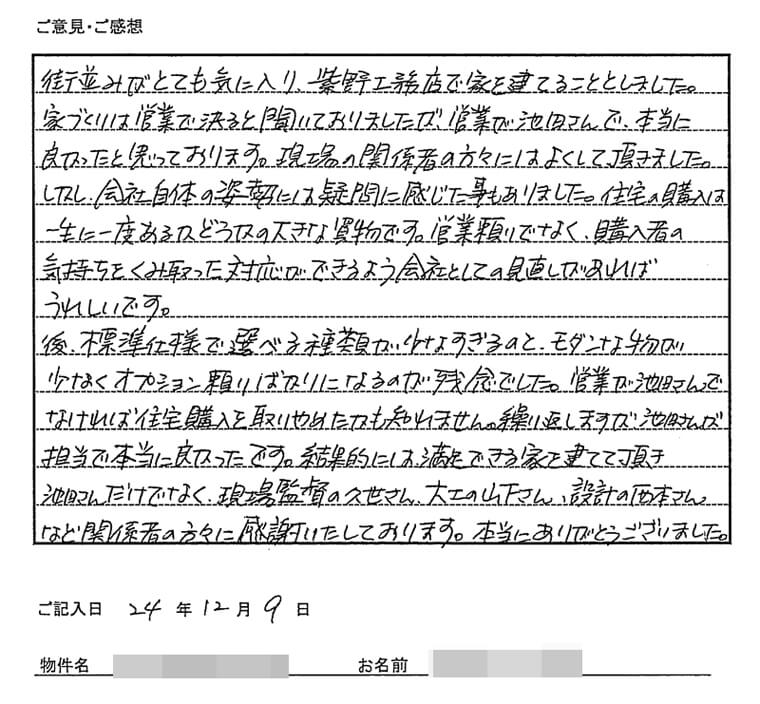 ご意見・ご感想
街並みがとても気に入り、紫野工務店で家を建てることとしました。
家づくりは営業で決ると聞いておりましたが、営業が池田さんで、本当に
良かったと思っております。現場の関係者の方々にはよくして頂きました。
しかし、会社自体の姿勢には疑問に感じた事もありました。住宅の購入は
一生に一度あるかどうかの大きな買物です。営業頼りでなく、購入者の
気持ちをくみ取った対応ができるよう会社としての見直しがあれば
うれしいです。
後、標準仕様で選べる種類が少なすぎるのと、モダンな物が
少なくオプション頼りばかりになるのが残念でした。営業が池田さんで
なければ住宅購入を取りやめたかも知れません。繰り返しますが池田さんが
担当で本当に良かったです。結果的には、満足できる家を建てて頂き
池田さんだけでなく、現場監督の久世さん、大工の山下さん、設計の西本さん
など関係者の方々に感謝いたしております。本当にありがとうございました。
ご記入日 24 年 12 月 9 日
物件名 お名前